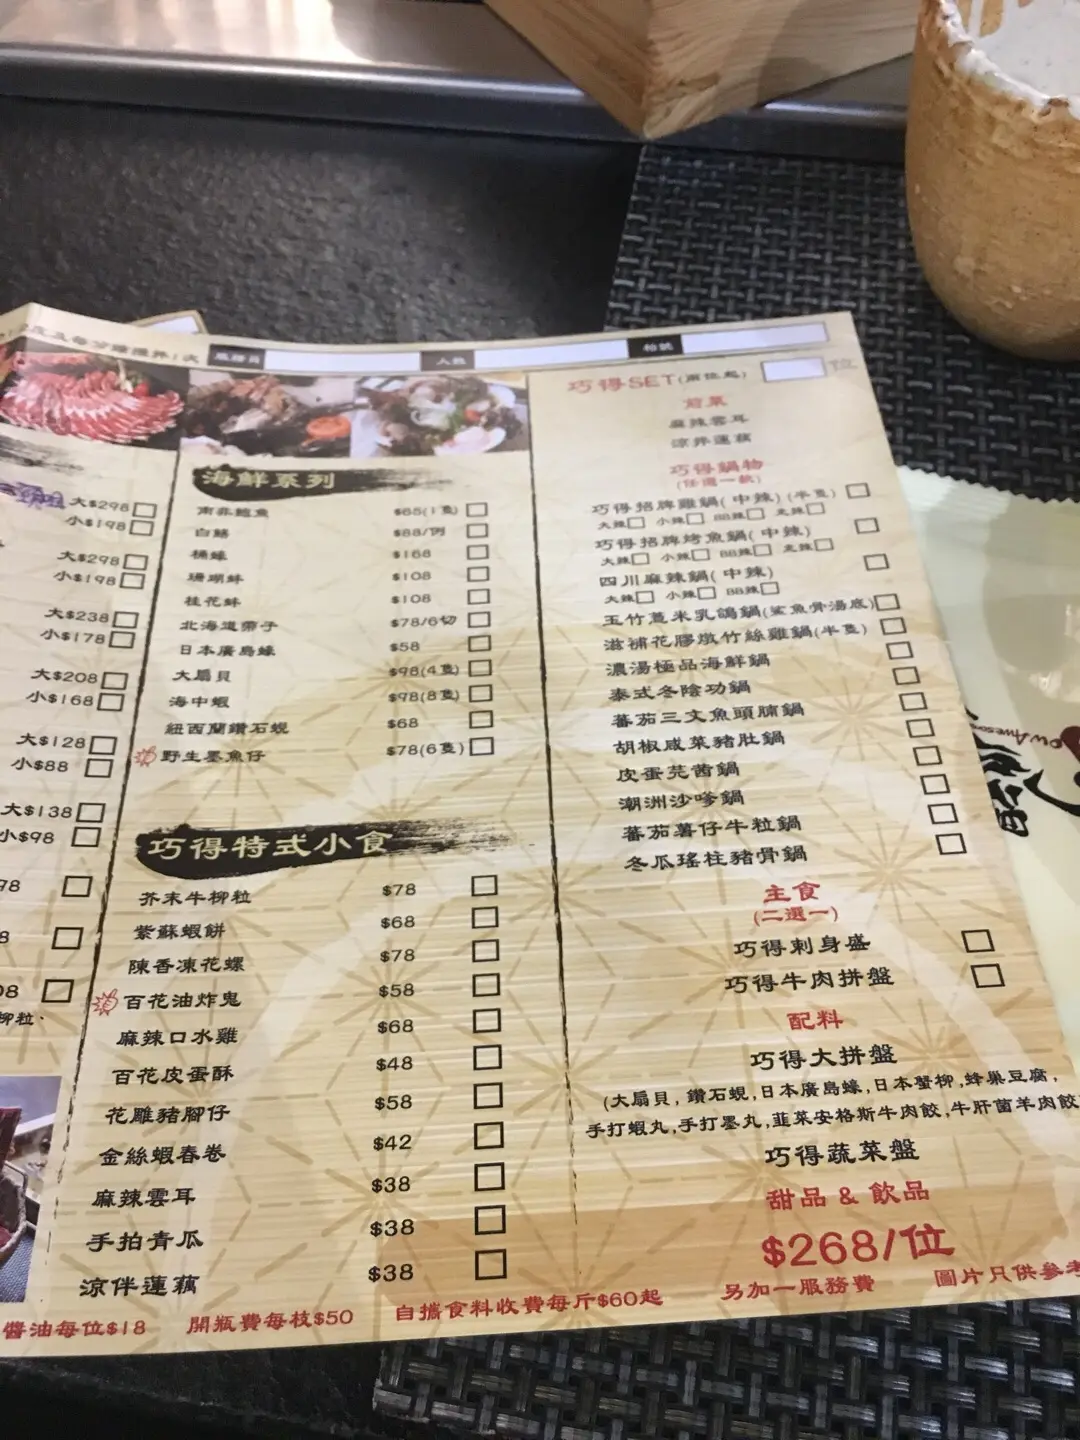 人數
枱號
大$298
小$198
大$298
小$198
大$238
小$178
大$208
小$168
大$128
小$88
大$138
小$98
柳粒.
海鮮系列
南非鮑魚 $65(1隻)
白鱔 $88/例
桶蠔 $168
珊瑚蚌 $108
桂花蚌 $108
北海道帶子 $78/6切
日本廣島蠔 $58
大扇貝 $98(4隻)
海中蝦 $98(8隻)
紐西蘭鑽石蜆 $68
野生墨魚仔 $78(6隻)
巧得特式小食
芥末牛柳粒 $78
紫蘇蝦餅 $68
陳香凍花螺 $78
百花油炸鬼 $58
麻辣口水雞 $68
百花皮蛋酥 $48
花雕豬腳仔 $58
金絲蝦春卷 $42
麻辣雲耳 $38
手拍青瓜 $38
涼伴蓮藕 $38
巧得SET(兩位起) 位
前菜
麻辣雲耳
涼拌蓮藕
巧得鍋物
(任選一款)
巧得招牌雞鍋(中辣)(半隻)
大辣 小辣 BB辣 走辣
巧得招牌烤魚鍋(中辣)
大辣 小辣 BB辣 走辣
四川麻辣鍋(中辣)
大辣 小辣 BB辣
玉竹薏米乳鴿鍋(鯊魚骨湯底)
滋補花膠燉竹絲雞鍋(半隻)
濃湯極品海鮮鍋
泰式冬陰功鍋
蕃茄三文魚頭腩鍋
胡椒咸菜豬肚鍋
皮蛋芫茜鍋
潮洲沙嗲鍋
蕃茄薯仔牛粒鍋
冬瓜瑤柱豬骨鍋
主食
(二選一)
巧得刺身盛
巧得牛肉拼盤
配料
巧得大拼盤
(大扇貝,鑽石蜆,日本廣島蠔,日本蟹柳,蜂巢豆腐,
手打蝦丸,手打墨丸,韮菜安格斯牛肉餃,牛肝菌羊肉餃
巧得蔬菜盤
甜品 & 飲品
$268/位
醬油每位$18 開瓶費每枝$50 自攜食料收費每斤$60起 另加一服務費 圖片只供參考